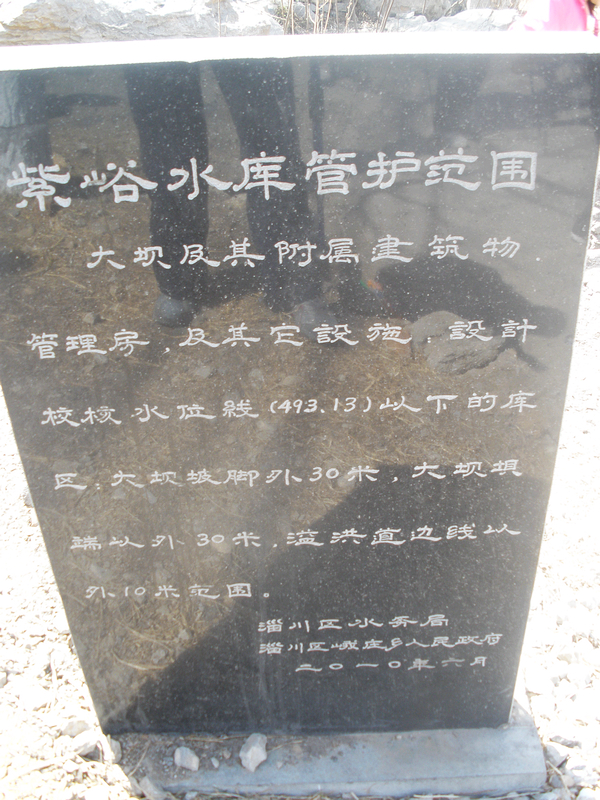 紫峪水库管护范围
大坝及其附属建筑物.
管理房,及其它設施;設計
校核水位线(493.13)以下的库
区;大坝坡脚外30米,大坝坝
端以外30米,溢洪道边线以
外10米范围。
淄川区水务局
淄川区峨庄乡人民政府
二〇一〇年六月